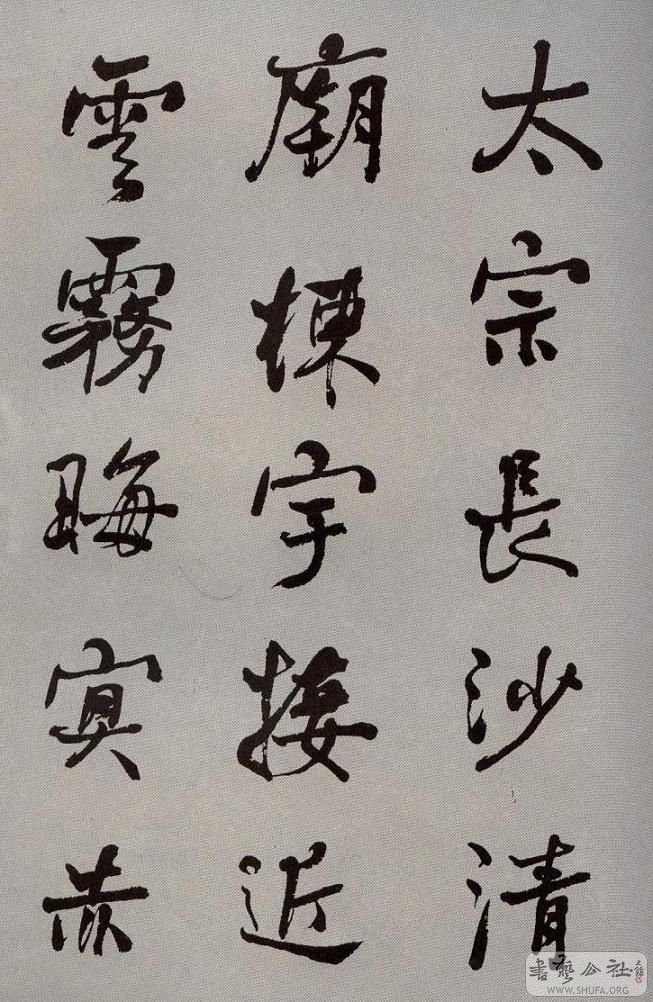 太宗長沙清
廟棟宇接近
雲霧晦冥赤
書藝公社
WWW.SHUFA.ORG